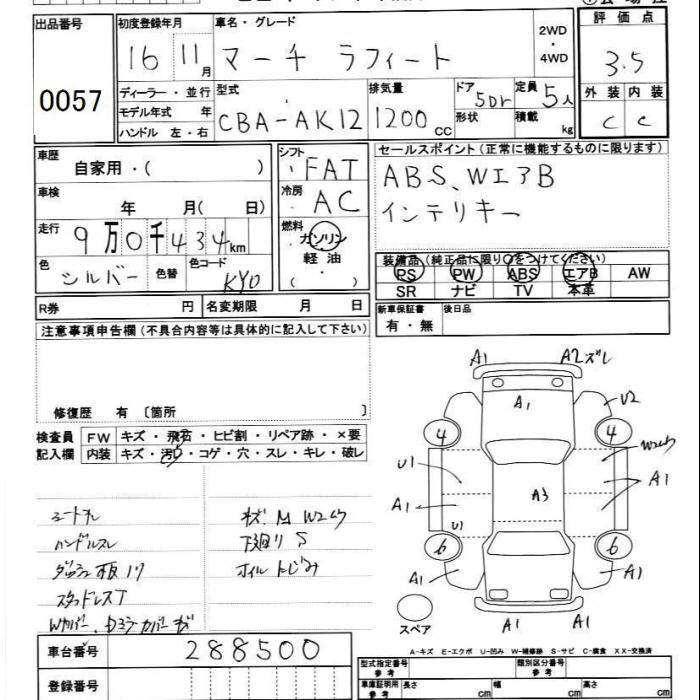 出品番号
0057
初度登録年月
16 11月
車名・グレード
マーチ ラフィート
2WD
・
4WD
評価点
3.5
外装 内装
C C
ディーラー・並行
モデル年式 年
ハンドル 左・右
型式
CBA-AK12
排気量
1200 CC
ドア
5Dr
形状
定員
5人
積載
kg
車歴
自家用・( )
車検
年 月( 日)
走行
9万0千434km
色
シルバー
色替
色コード
KY0
シフト
FAT
冷房
AC
燃料
ガソリン
軽油
( )
セールスポイント(正常に機能するものに限ります)
ABS、WエアB
インテリキー
装備品(純正品に限り○をつけてください)
PS PW ABS エアB AW
SR ナビ TV 本革
新車保証書
有・無
後日品
R券 円
名変期限 月 日
注意事項申告欄(不具合内容等は具体的に記入して下さい)
修復歴 有 〔箇所 〕
検査員
記入欄
FW キズ・飛石・ヒビ割・リペア跡・×要
内装 キズ・汚レ・コゲ・穴・スレ・キレ・破レ
ハンドルスレ
スタッドレスT
下廻りS
A1 A2ズレ
A1
U2
4 4
U1
A1
U1
A3
A1
6 6
A1
A1
A1 A1
スペア
A-キズ E-エクボ U-凹み W-補修跡 S-サビ C-腐食 XX-交換済
車台番号
288500
登録番号
型式指定番号
参考
類別区分番号
参考
車庫証明用
参考
長さ cm
幅 cm
高さ cm